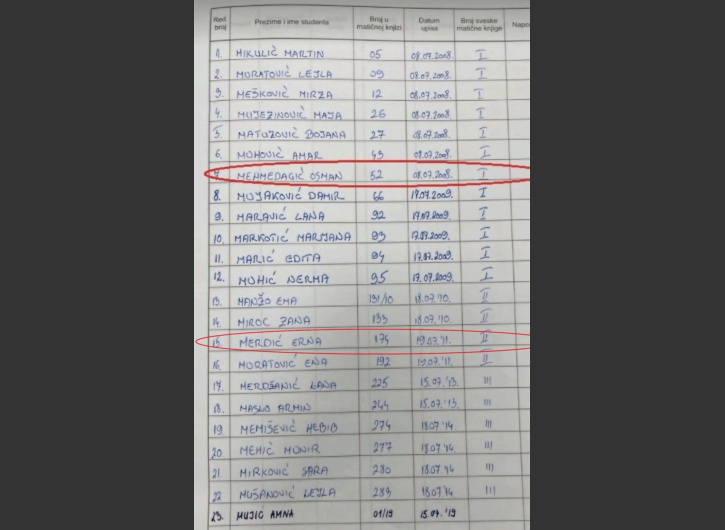 Red. broj Prezime i ime studenta Broj u matičnoj knjizi Datum upisa Broj sveske matične knjige Napo
1. MIKULIĆ MARTIN 05 08.07.2008. I
2. MURATOVIĆ LEJLA 09 08.07.2008. I
3. MEŠKOVIĆ MIRZA 12 08.07.2008. I
4. MUJEZINOVIĆ MAJA 26 08.07.2008. I
5. MATUZOVIĆ BOJANA 27 08.07.2008. I
6. MUHOVIĆ AMAR 43 08.07.2008. I
7. MEHMEDAGIĆ OSMAN 52 08.07.2008. I
8. MUJAKOVIĆ DAMIR 66 17.07.2009. I
9. MARAVIĆ LANA 92 17.07.2009. I
10. MARKOTIĆ MARIJANA 93 17.07.2009. I
11. MARIĆ EDITA 94 17.07.2009. I
12. MUHIĆ NERMA 95 17.07.2009. I
13. MANŽO EMA 131/10 18.07.'10. II
14. MIROĆ ZANA 133 18.07.'10. II
15. MERDIĆ ERNA 174 19.07.'11. II
16. MURATOVIĆ ENA 192 19.07.'11. II
17. MERDŽANIĆ LANA 225 15.07.'13. III
18. MASLO ARMIN 244 15.07.'13. III
19. MEMIŠEVIĆ HEBIB 274 18.07.'14 III
20. MEHIĆ MUNIR 277 18.07.'14 III
21. MIRKOVIĆ SARA 280 18.07.'14 III
22. MUŠANOVIĆ LEJLA 289 18.07.'14 III
23. MUJIĆ AMNA 01/19 15.07.'19